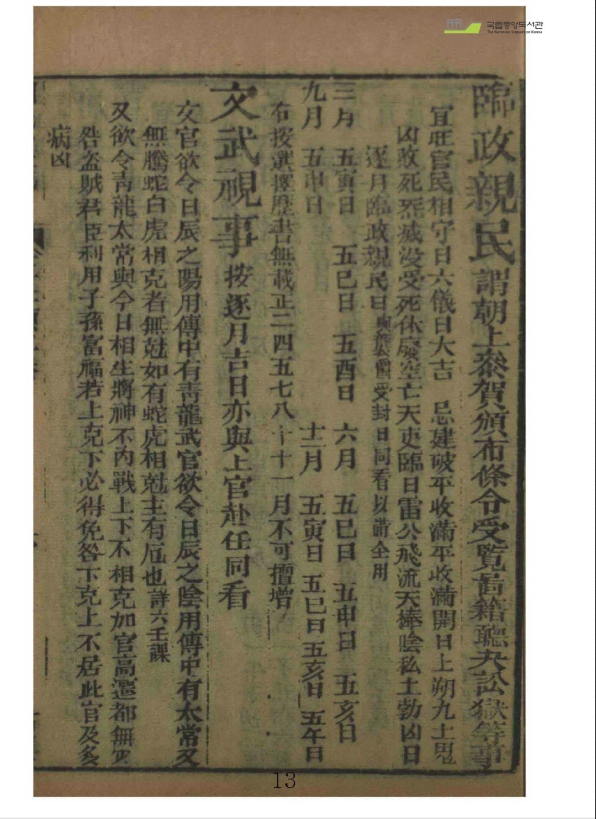 국립중앙도서관
The National Library of Korea
臨政親民 謂朝上叅賀頒布條令受覧啚籍聽决訟獄等事
宜旺官民相守日六儀日大吉 忌建破平收滿平收滿開日上朔九土鬼
凶敗死炁滅没受死休廢空亡天吏臨日雷公飛流天棒陰私土勃凶日
逐月臨政親民日與襲爵受封日同看以前全用
三月 五寅日 五巳日 五酉日 六月 五巳日 五申日 五亥日
九月 五申日 十二月 五寅日 五巳日 五亥日 五午日
右按選擇歷書無載正二四五七八十十一月不可擅增
文武視事 按逐月吉日亦與上官赴任同看
文官欲令日辰之陽用傳中有青龍武官欲令日辰之陰用傳中有太常又
無騰蛇白虎相克者無尅如有蛇虎相尅主有厄也詳六壬課
又欲令青龍太常與今日相生將神不內戰上下不相克加官高遷都無
咎盗賊君臣利用子孫富福若上克下必得免咎下克上不居此官及多
病凶
13